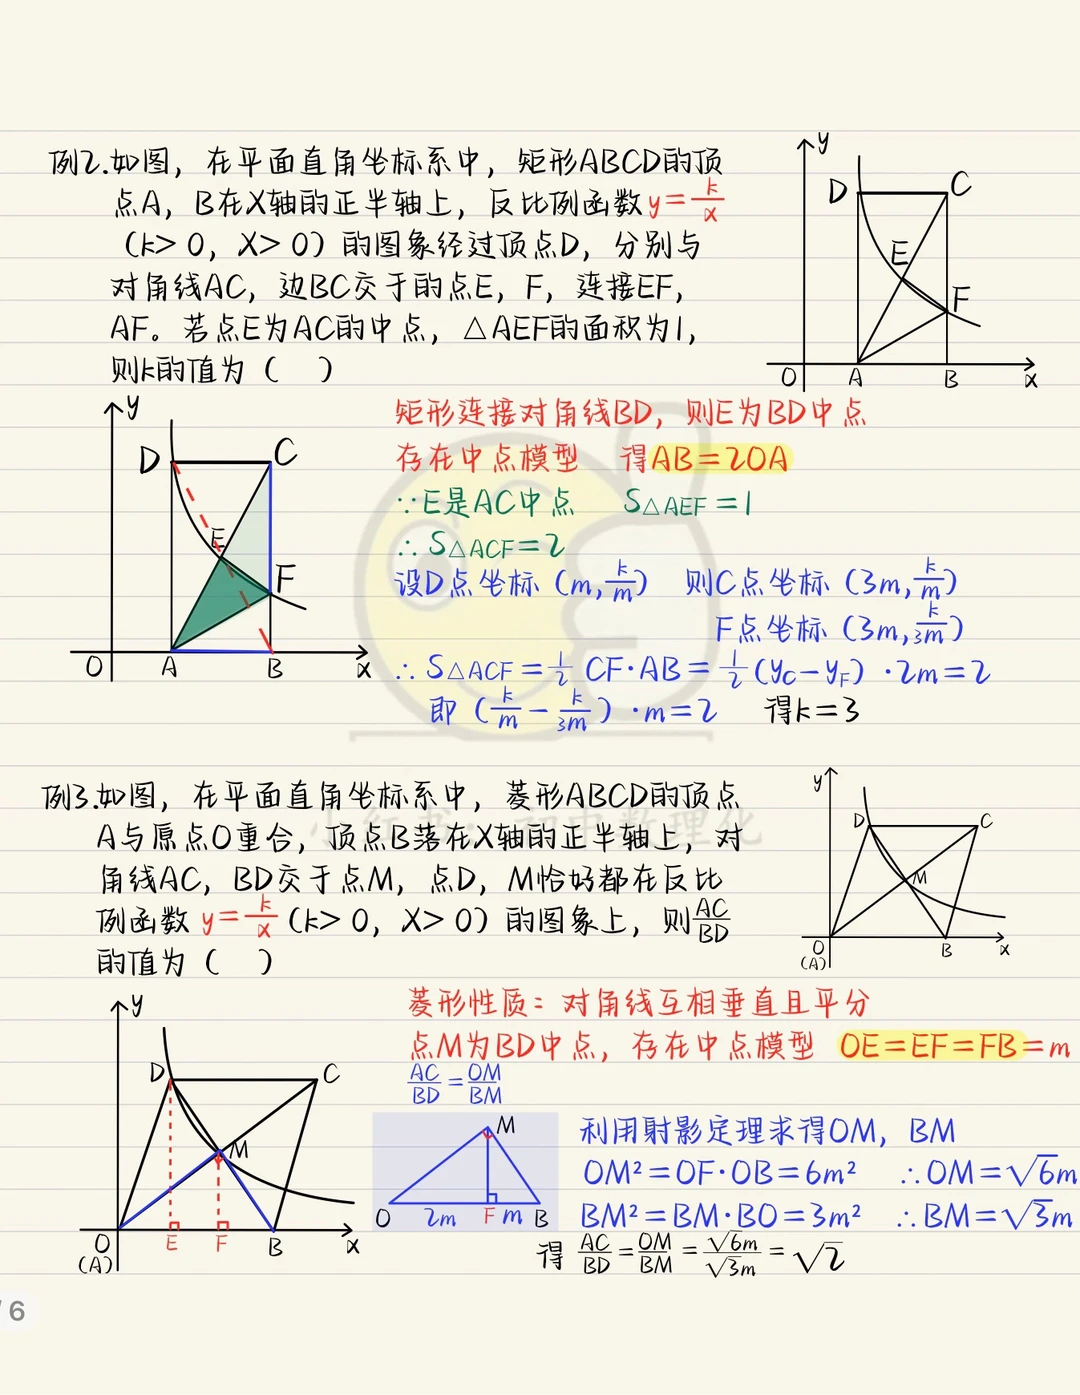 例2.如图，在平面直角坐标系中，矩形ABCD的顶
点A，B在X轴的正半轴上，反比例函数y=k/x
（k>0，X>0）的图象经过顶点D，分别与
对角线AC，边BC交于的点E，F，连接EF，
AF。若点E为AC的中点，△AEF的面积为1，
则k的值为（ ）
y
D
C
E
F
O
A
B
x
y
D
C
E
F
O
A
B
x
矩形连接对角线BD，则E为BD中点
存在中点模型 得AB=2OA
∵E是AC中点 S△AEF=1
∴S△ACF=2
设D点坐标（m,k/m） 则C点坐标（3m,k/m）
F点坐标（3m,k/3m）
∴S△ACF=1/2 CF·AB=1/2(yC-yF)·2m=2
即（k/m-k/3m）·m=2 得k=3
小红书：初中数理化
例3.如图，在平面直角坐标系中，菱形ABCD的顶点
A与原点O重合，顶点B落在X轴的正半轴上，对
角线AC，BD交于点M，点D，M恰好都在反比
例函数y=k/x（k>0，X>0）的图象上，则AC/BD
的值为（ ）
y
D
C
M
O
(A)
B
x
y
D
C
M
O
(A)
E
F
B
x
菱形性质：对角线互相垂直且平分
点M为BD中点，存在中点模型 OE=EF=FB=m
AC/BD=OM/BM
M
O 2m F m B
利用射影定理求得OM，BM
OM²=OF·OB=6m² ∴OM=√6m
BM²=BM·BO=3m² ∴BM=√3m
得 AC/BD=OM/BM=√6m/√3m=√2
/6